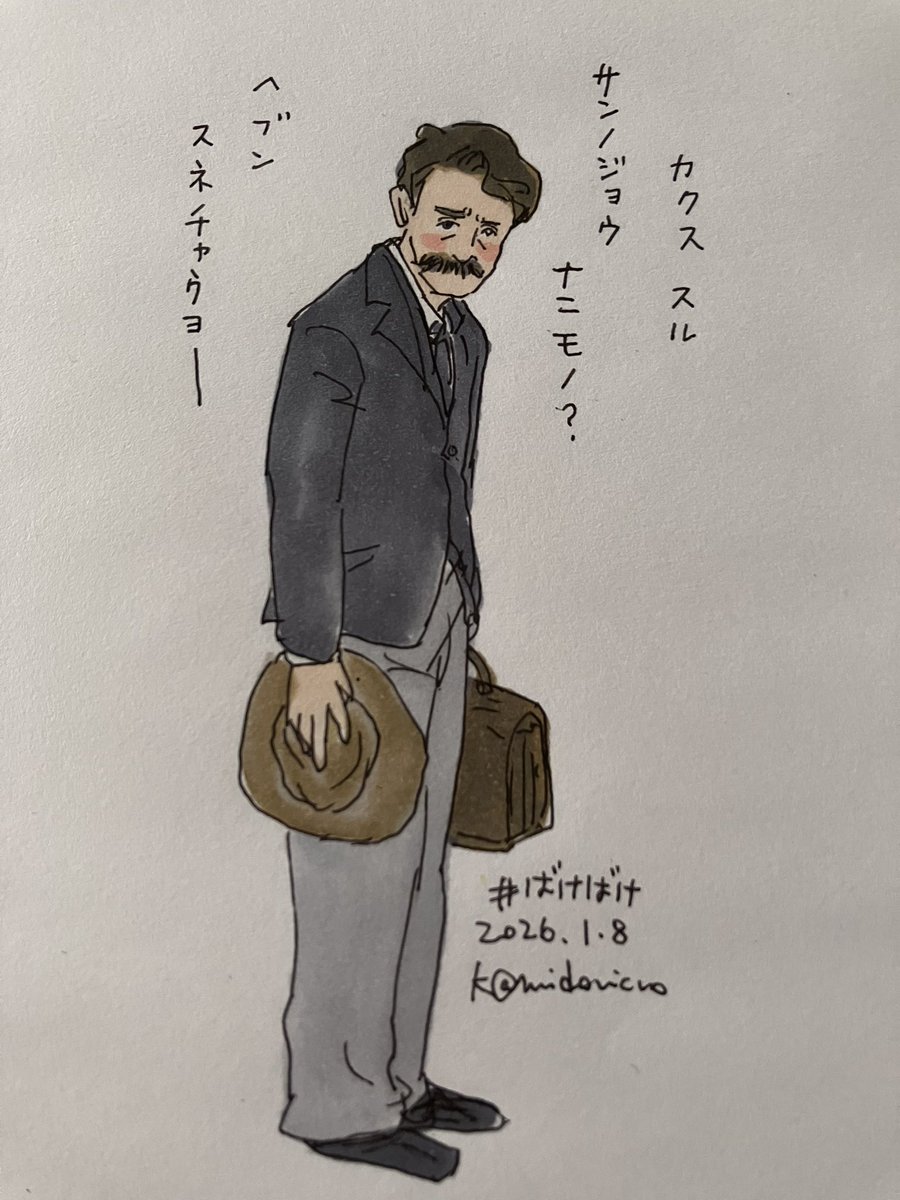 カクス スル
サンノジョウ
ナニモノ?
ヘブン
スネチャウヨー
#ばけばけ
2026.1.8
K@midoricro